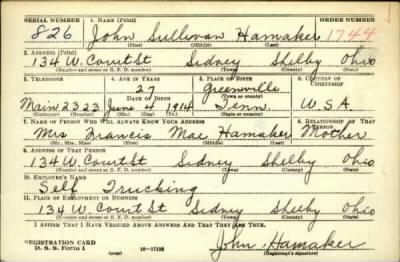 SERIAL NUMBER 1. NAME (Print) ORDER NUMBER
826 John Sullivan Hamaker 1744
(First) (Middle) (Last)
2. ADDRESS (Print)
134 W. Court St Sidney Shelby Ohio
(Number and street or R. F. D. number) (Town) (County) (State)
3. TELEPHONE 4. AGE IN YEARS 5. PLACE OF BIRTH 6. COUNTRY OF CITIZENSHIP
27 Greenville
DATE OF BIRTH (Town or county)
Main 2323 June 4 1914 Tenn. U.S.A.
(Exchange) (Number) (Mo.) (Day) (Yr.) (State or country)
7. NAME OF PERSON WHO WILL ALWAYS KNOW YOUR ADDRESS 8. RELATIONSHIP OF THAT PERSON
Mrs Francis Mae Hamaker Mother
(Mr., Mrs., Miss) (First) (Middle) (Last)
9. ADDRESS OF THAT PERSON
134 W. Court St Sidney Shelby Ohio
(Number and street or R. F. D. number) (Town) (County) (State)
10. EMPLOYER'S NAME
Self Trucking
11. PLACE OF EMPLOYMENT OR BUSINESS
134 W. Court St Sidney Shelby Ohio
(Number and street or R. F. D. number) (Town) (County) (State)
I AFFIRM THAT I HAVE VERIFIED ABOVE ANSWERS AND THAT THEY ARE TRUE.
REGISTRATION CARD
D. S. S. Form 1 (over) 16-17105 John Hamaker
(Registrant's signature)